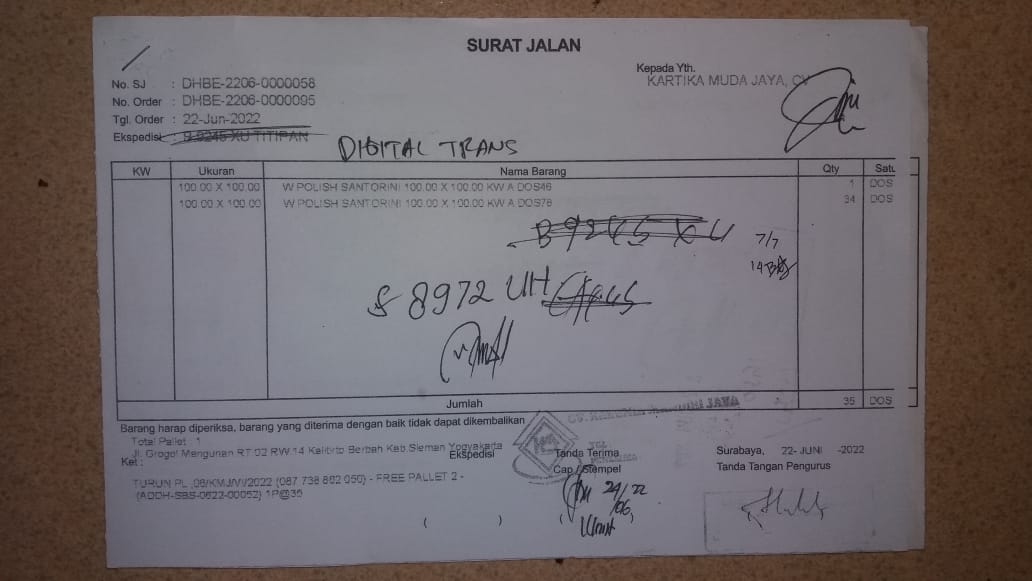 SURAT JALAN
No. SJ : DHBE-2206-0000058
No. Order : DHBE-2206-0000095
Tgl. Order : 22-Jun-2022
Ekspedisi : B 9245 XU TITIPAN
Kepada Yth.
KARTIKA MUDA JAYA, CV
DIGITAL TRANS
KW Ukuran Nama Barang Qty Satu
100.00 X 100.00 W POLISH SANTORINI 100.00 X 100.00 KW A DOS46 1 DOS
100.00 X 100.00 W POLISH SANTORINI 100.00 X 100.00 KW A DOS78 34 DOS
B 9245 XU
7/7
S 8972 UH
Jumlah 35 DOS
Barang harap diperiksa, barang yang diterima dengan baik tidak dapat dikembalikan
Total Pallet : 1
Jl. Grogol Mengunan RT 02 RW 14 Kalitirto Berbah Kab.Sleman Yogyakarta
Ket :
TURUN PL ,08/KMJ/VI/2022 (087 738 862 050) - FREE PALLET 2 -
(ADDH-SBS-0622-00052) 1P@35
Ekspedisi
( )
JAYA
Tanda Terima
Cap / Stempel
24/22
/06
( )
Surabaya, 22- JUNI -2022
Tanda Tangan Pengurus